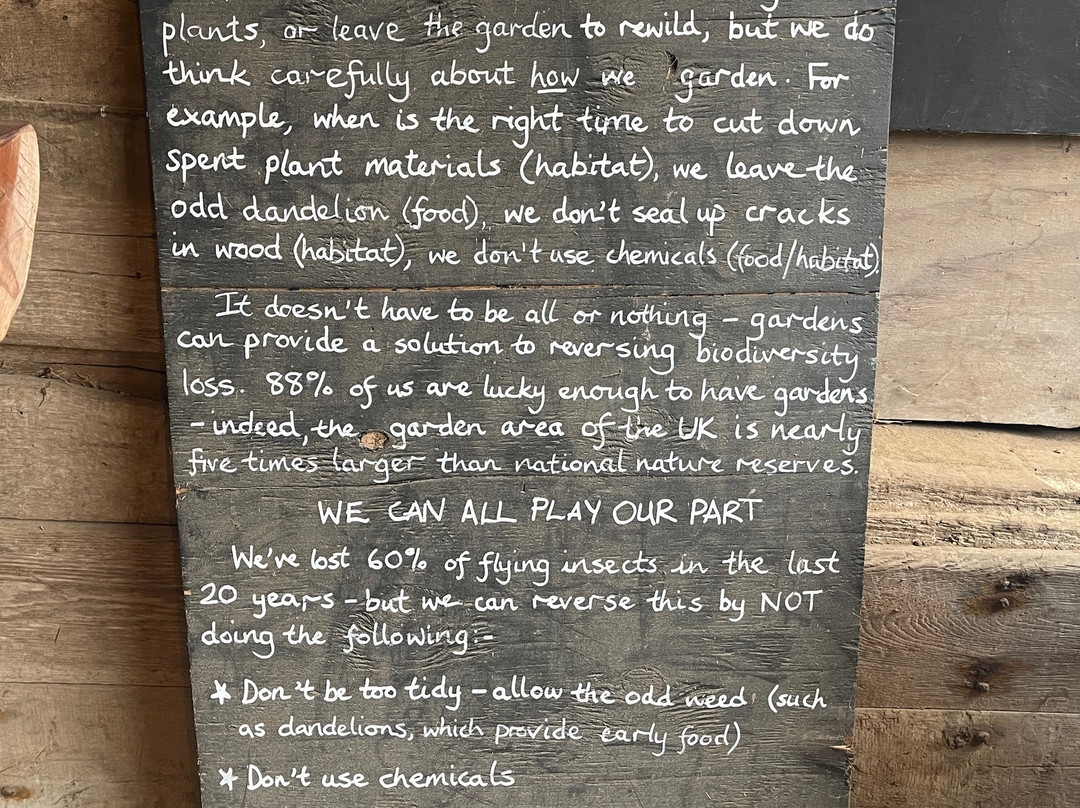 plants, or leave the garden to rewild, but we do
think carefully about how we garden. For
example, when is the right time to cut down
spent plant materials (habitat), we leave the
odd dandelion (food), we don't seal up cracks
in wood (habitat), we don't use chemicals (food/habitat).
It doesn't have to be all or nothing - gardens
can provide a solution to reversing biodiversity
loss. 88% of us are lucky enough to have gardens
- indeed, the garden area of the UK is nearly
five times larger than national nature reserves.
WE CAN ALL PLAY OUR PART
We've lost 60% of flying insects in the last
20 years - but we can reverse this by NOT
doing the following:-
* Don't be too tidy - allow the odd weed (such
as dandelions, which provide early food)
* Don't use chemicals